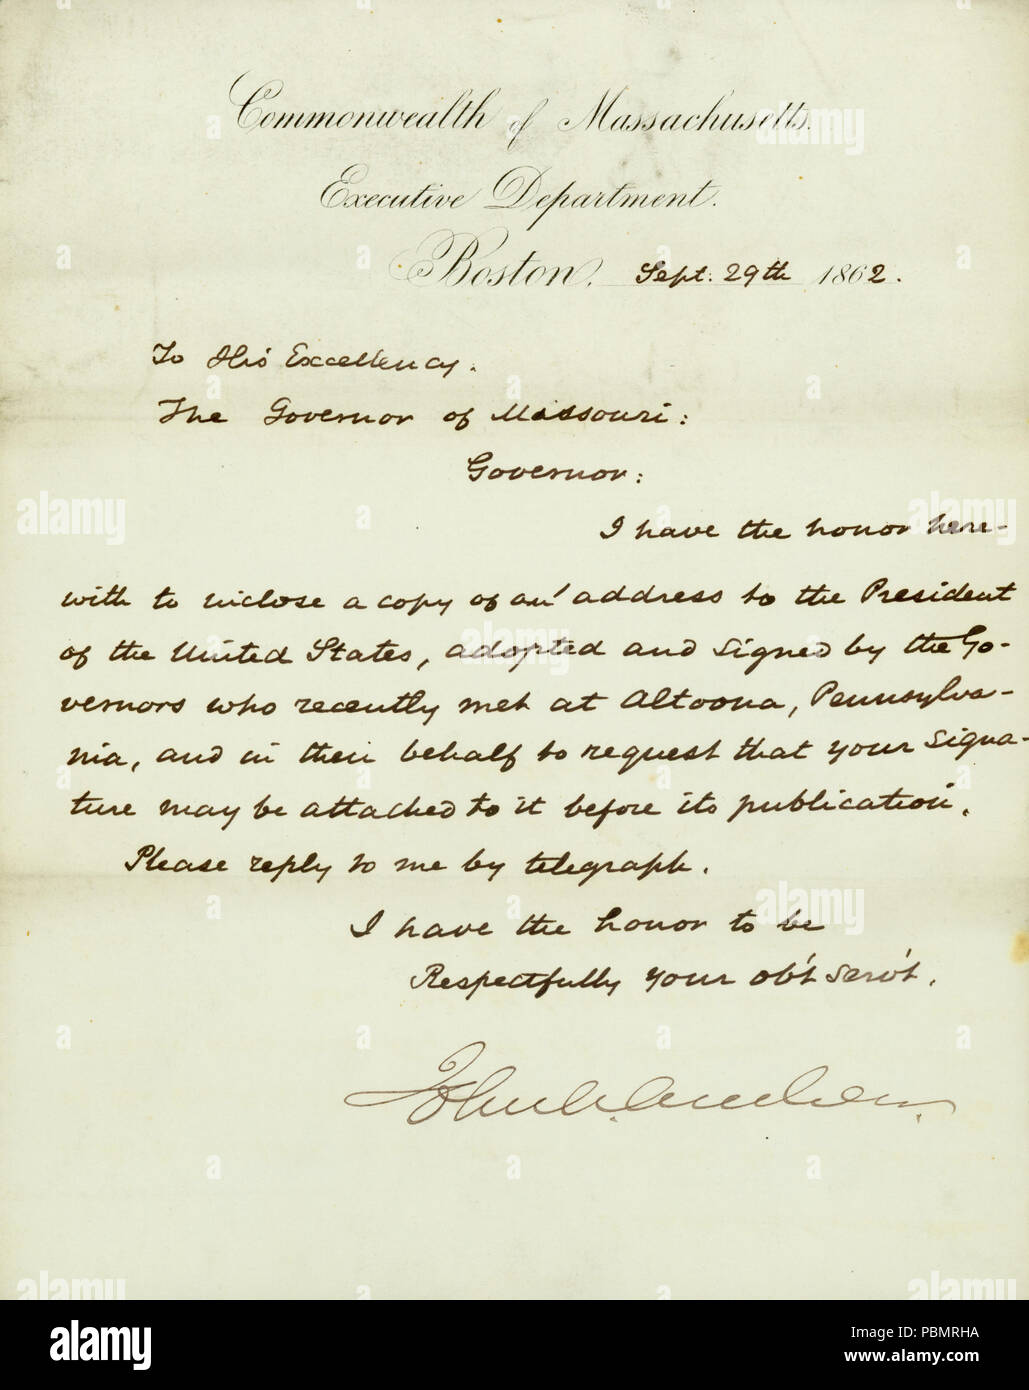 Commonwealth of Massachusetts.
Executive Department.
Boston, Sept. 29th 1862.
To His Excellency.
The Governor of Missouri:
Governor:
I have the honor here-
with to inclose a copy of an address to the President
of the United States, adopted and signed by the Go-
vernors who recently met at Altoona, Pennsylva-
nia, and in their behalf to request that your signa-
ture may be attached to it before its publication.
Please reply to me by telegraph.
I have the honor to be
Respectfully your ob't serv't.
John A. Andrew.
a alamy
alamy
Image ID: PBMRHA
www.alamy.com